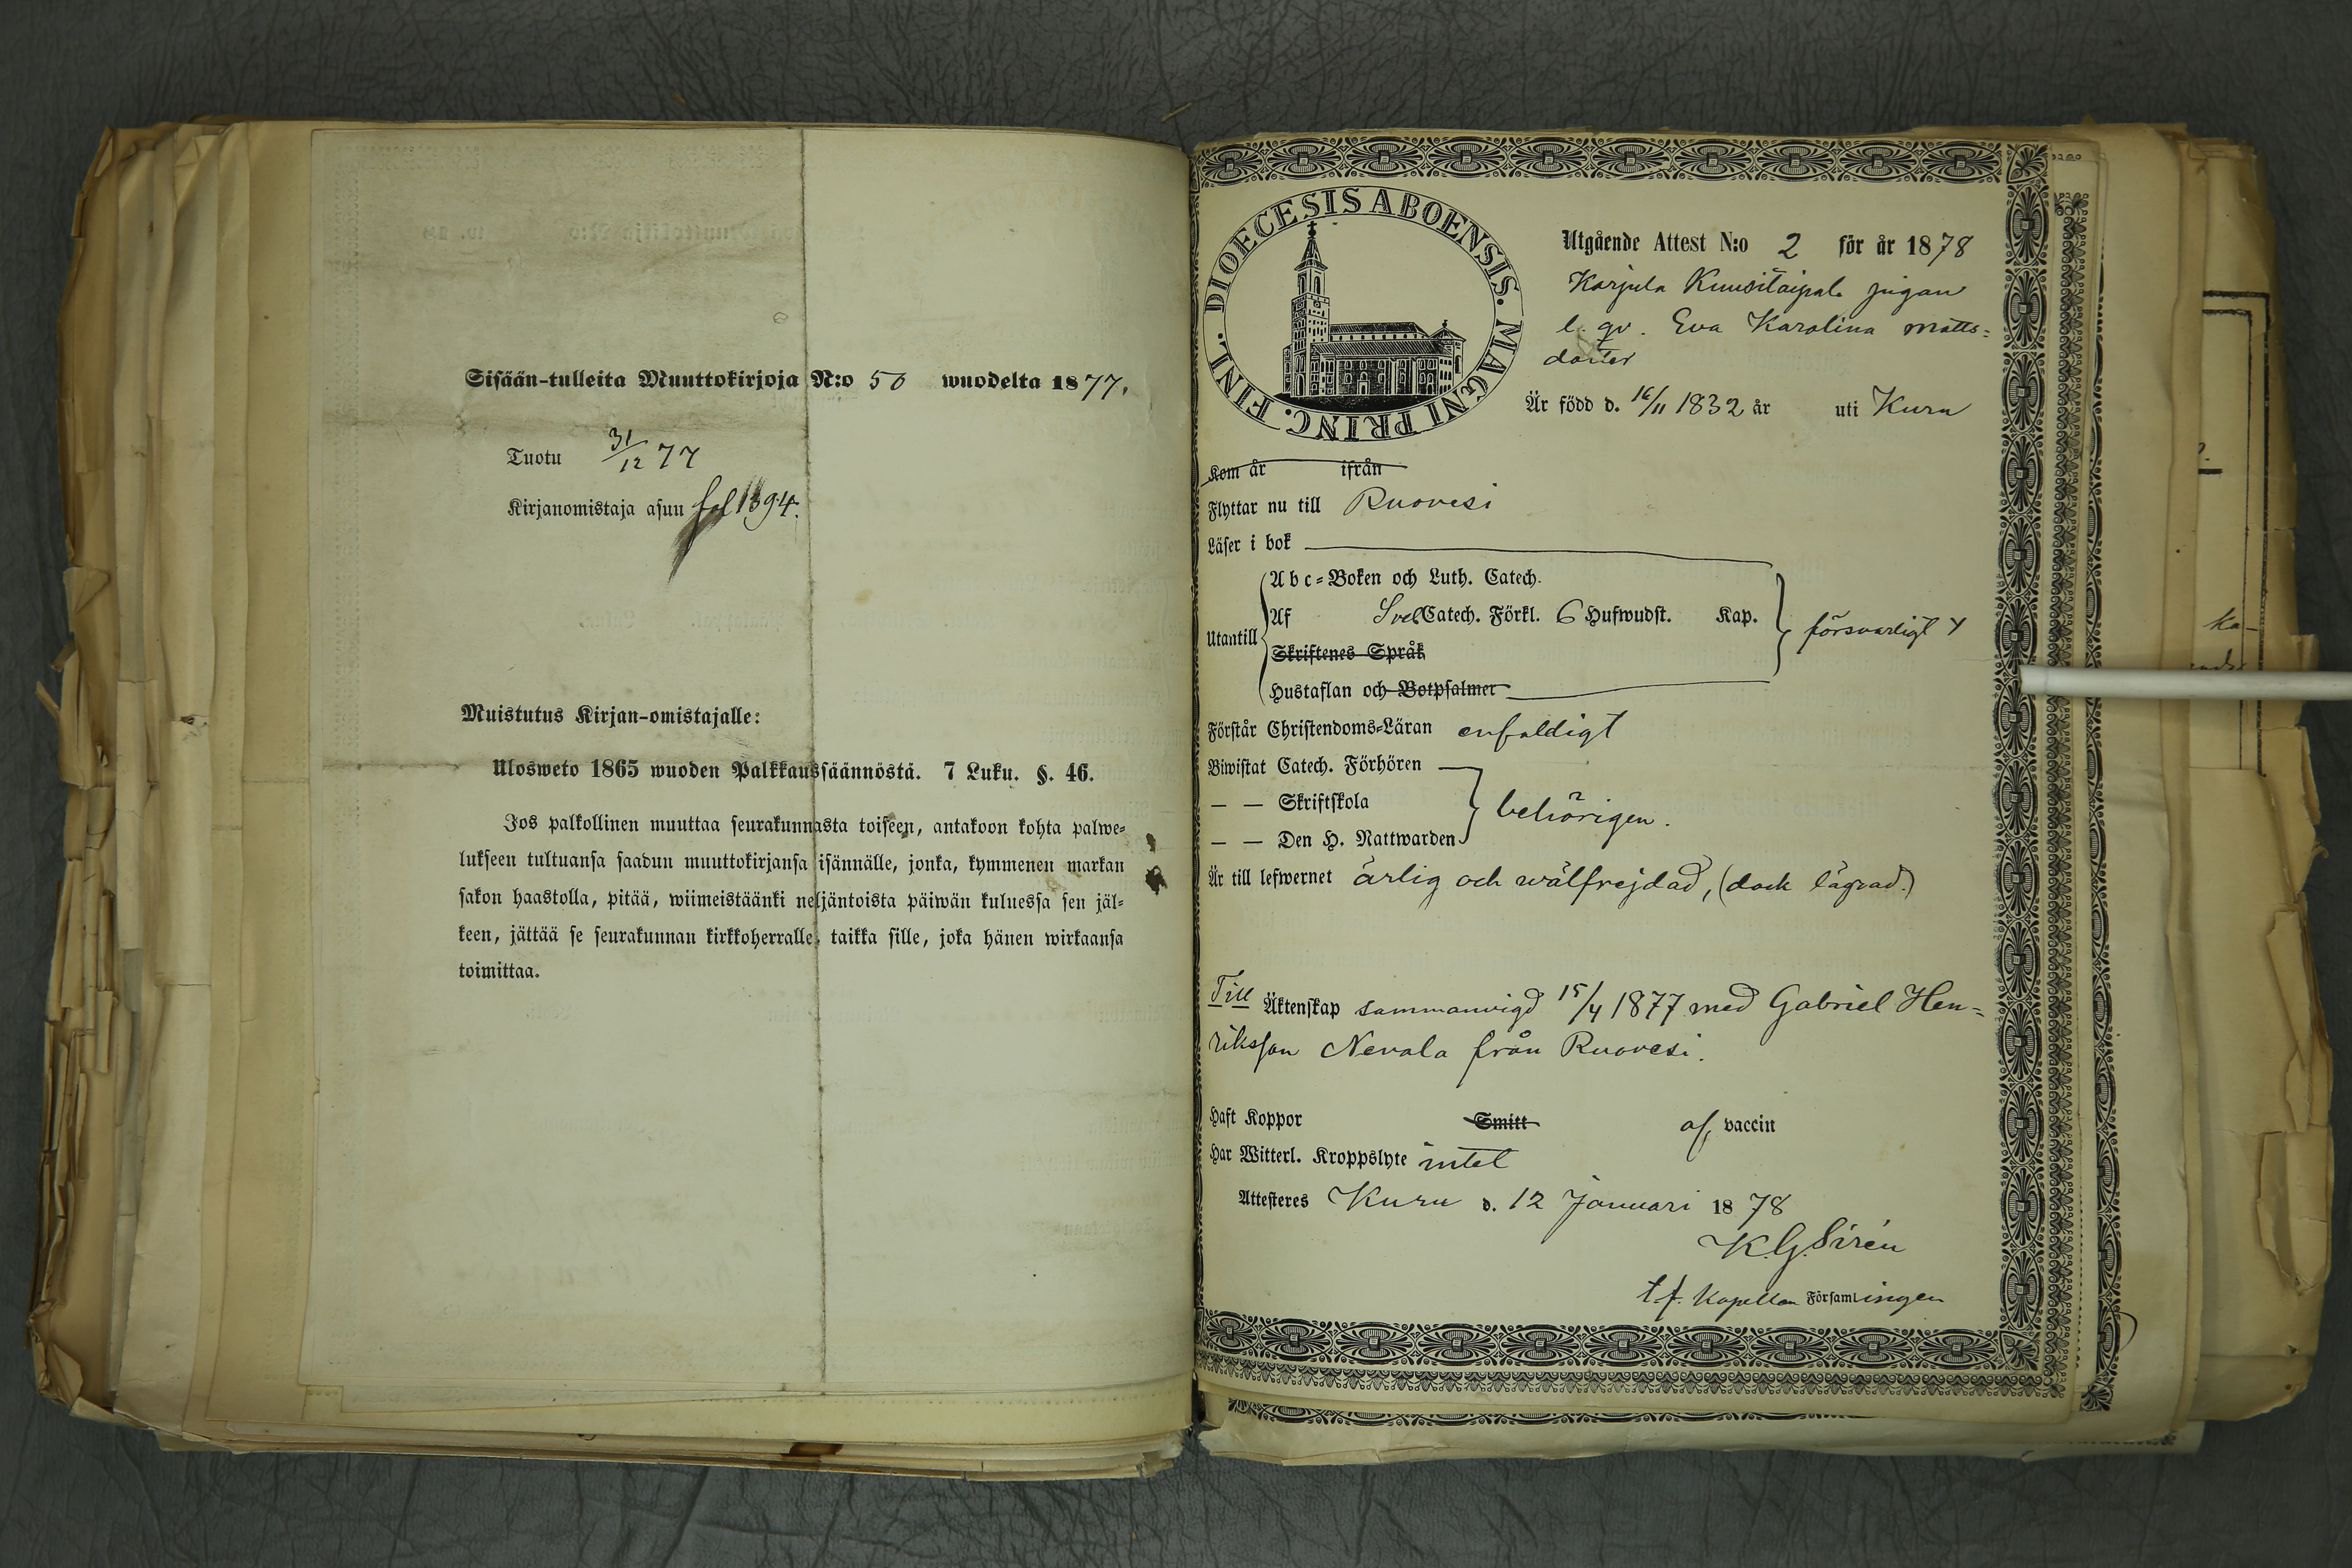 Sisään-tulleita Muuttokirjoja N:o 50 wuodelta 1877.
Tuotu 31/12 77
Kirjanomistaja asuu fol 1394.
Muistutus Kirjan-omistajalle:
Ulosweto 1865 wuoden Palkkaussäännöstä. 7 Luku. §. 46.
Jos palkollinen muuttaa seurakunnasta toiseen, antakoon kohta palwe=
lukseen tultuansa saadun muuttokirjansa isännälle, jonka, kymmenen markan
sakon haastolla, pitää, wiimeistäänki neljäntoista päiwän kuluessa sen jäl=
keen, jättää se seurakunnan kirkkoherralle, taikka sille, joka hänen wirkaansa
toimittaa.
DIOECESIS ABOENSIS. MAGNI PRINC. FINL.
Utgående Attest N:o 2 för år 1878
Karjula Kuusitaipale pigan
l. qv. Eva Karolina Matts=
dotter
Är född d. 16/11 1832 år uti Kuru
Kom år ifrån
Flyttar nu till Ruovesi
Läser i bok
Abc=Boken och Luth. Catech.
Utantill Af Svel Catech. Förkl. 6 Hufwudst. Kap. försvarligt
Skriftenes Språk
Hustaflan och Botpsalmer
Förstår Christendoms=Läran enfaldigt
Biwistat Catech. Förhören
— — Skriftskola behörigen.
— — Den H. Nattwarden
Är till lefwernet ärlig och wälfrejdad, (dock lägrad.)
Till Äktenskap sammanvigd 15/4 1877 med Gabriel Hen=
riksson Nevala från Ruovesi.
Haft Koppor Smitt af vaccin
Har Witterl. Kroppslyte intet
Attesteres Kuru d. 12 Januari 1878
K. G. Sirén
t.f. Kapellan Församlingen
ka-